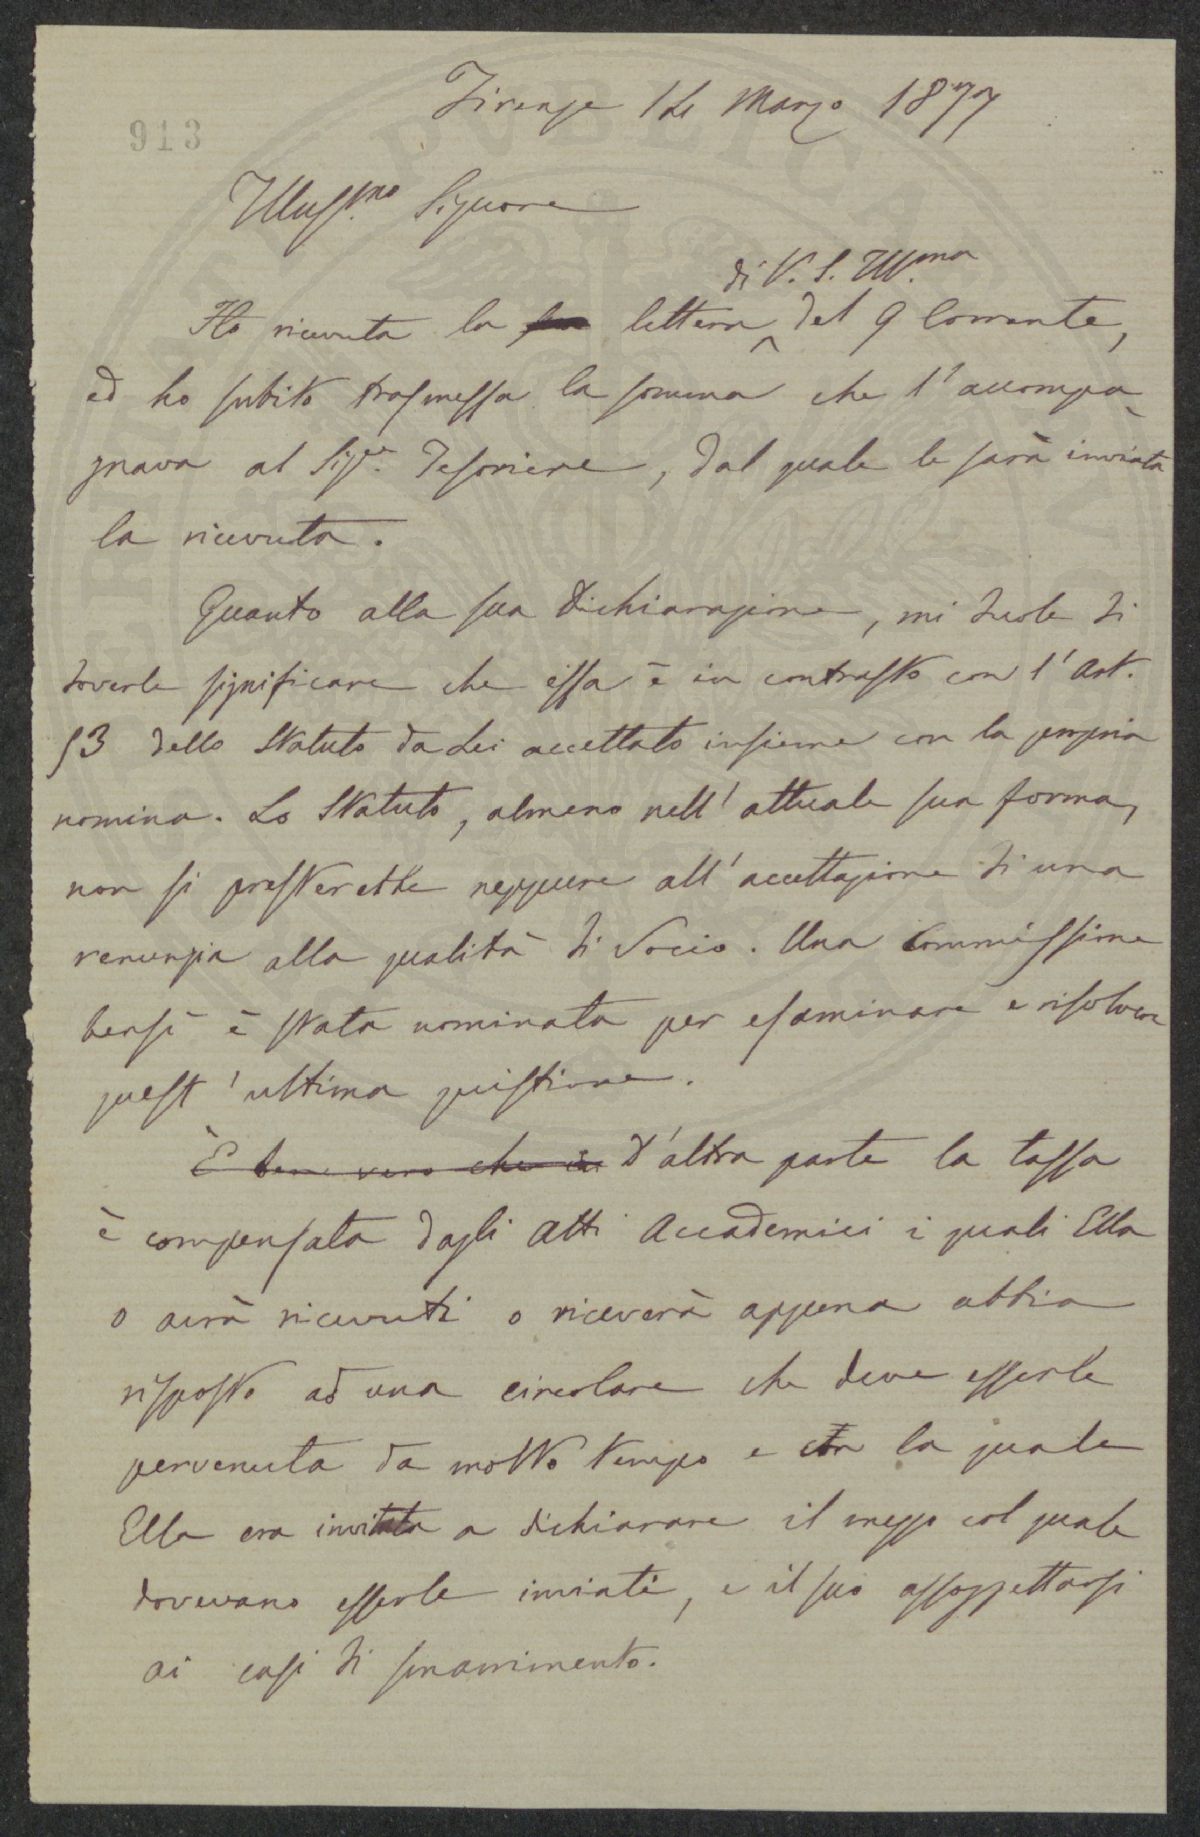 913
Firenze 14 Marzo 1877
Illuss.mo Signore
di V. S. Ill.ma
Ho ricevuta la sua lettera del 9 Corrente,
ed ho subito trasmessa la somma che l'accompa-
gnava al Sig.r Tesoriere, dal quale le sarà inviata
la ricevuta.
Quanto alla sua dichiarazione, mi duole di
doverle significare che essa è in contrasto con l'Art.
53 dello Statuto da Lei accettato insieme con la propria
nomina. Lo Statuto, almeno nell'attuale sua forma,
non si presterebbe neppure all'accettazione di una
renunzia alla qualità di Socio. Una Commissione
bensì è stata nominata per esaminare e risolvere
quest'ultima quistione.
È bene vero che d'altra parte la tassa
è compensata dagli Atti Accademici i quali Ella
o avrà ricevuti o riceverà appena abbia
risposto ad una circolare che deve esserle
pervenuta da molto tempo e con la quale
Ella era invitata a dichiarare il mezzo col quale
dovevano esserle inviati, e il suo assoggettarsi
ai casi di smarrimento.